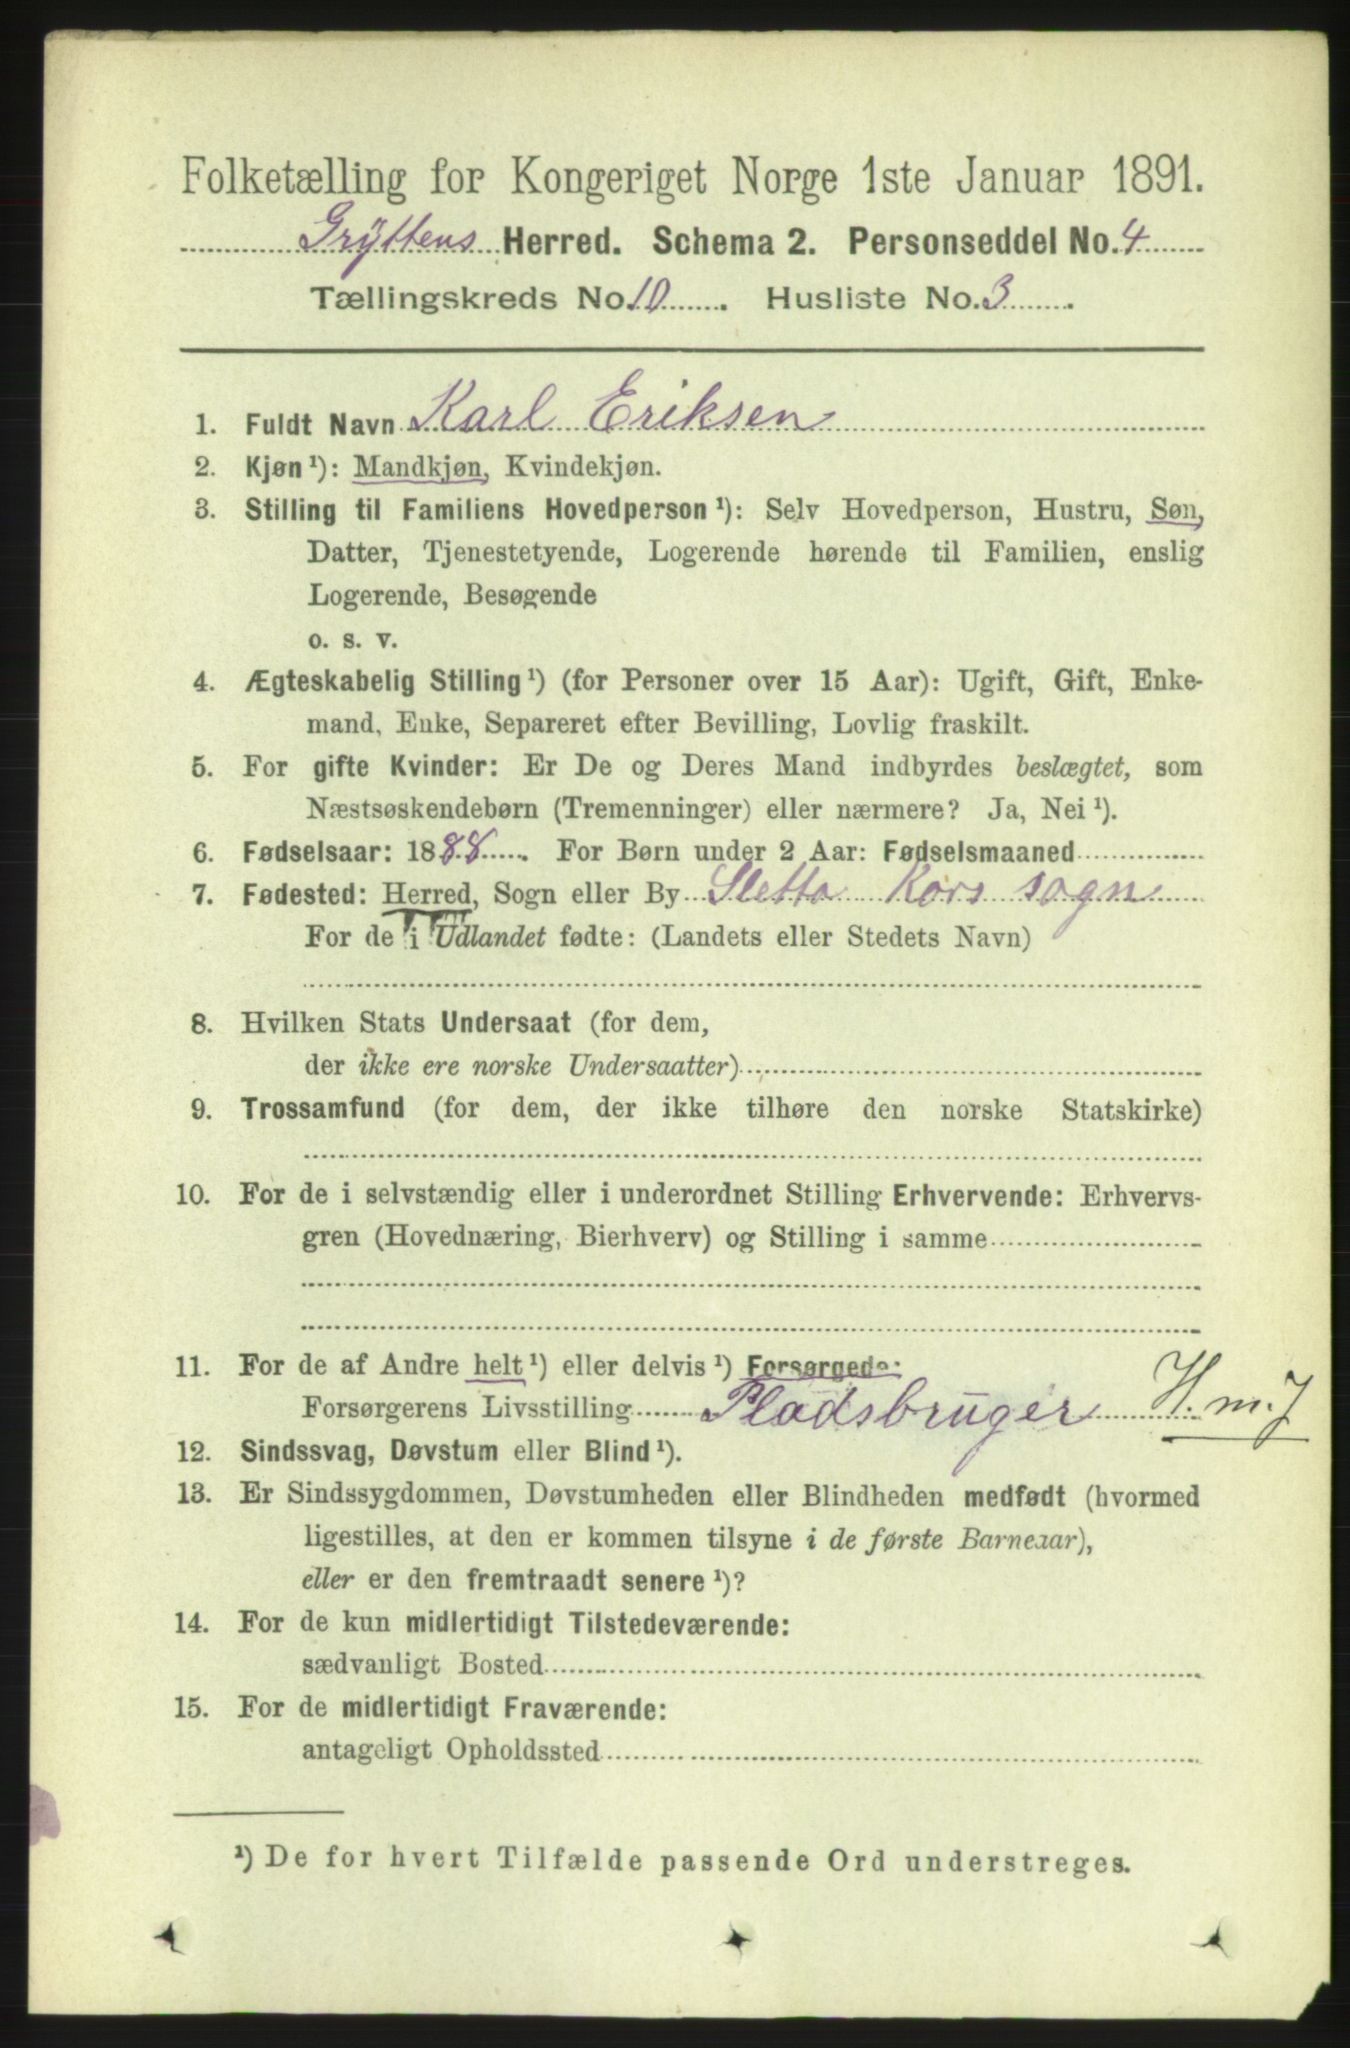 Folketælling for Kongeriget Norge 1ste Januar 1891.
Gryttens Herred. Schema 2. Personseddel No. 4
Tællingskreds No. 10. Husliste No. 3.
1. Fuldt Navn Karl Eriksen
2. Kjøn ¹): Mandkjøn, Kvindekjøn.
3. Stilling til Familiens Hovedperson ¹): Selv Hovedperson, Hustru, Søn,
Datter, Tjenestetyende, Logerende hørende til Familien, enslig
Logerende, Besøgende
o. s. v.
4. Ægteskabelig Stilling ¹) (for Personer over 15 Aar): Ugift, Gift, Enke-
mand, Enke, Separeret efter Bevilling, Lovlig fraskilt.
5. For gifte Kvinder: Er De og Deres Mand indbyrdes beslægtet, som
Næstsøskendebørn (Tremenninger) eller nærmere? Ja, Nei ¹).
6. Fødselsaar: 1888. For Børn under 2 Aar: Fødselsmaaned
7. Fødested: Herred, Sogn eller By Sletta Kors sogn
For de i Udlandet fødte: (Landets eller Stedets Navn)
8. Hvilken Stats Undersaat (for dem,
der ikke ere norske Undersaatter)
9. Trossamfund (for dem, der ikke tilhøre den norske Statskirke)
10. For de i selvstændig eller i underordnet Stilling Erhvervende: Erhvervs-
gren (Hovednæring, Bierhverv) og Stilling i samme
11. For de af Andre helt ¹) eller delvis ¹) Forsørgede:
Forsørgerens Livsstilling Pladsbruger H. m. J
12. Sindssvag, Døvstum eller Blind ¹).
13. Er Sindssygdommen, Døvstumheden eller Blindheden medfødt (hvormed
ligestilles, at den er kommen tilsyne i de første Barneaar),
eller er den fremtraadt senere ¹)?
14. For de kun midlertidigt Tilstedeværende:
sædvanligt Bosted
15. For de midlertidigt Fraværende:
antageligt Opholdssted
¹) De for hvert Tilfælde passende Ord understreges.